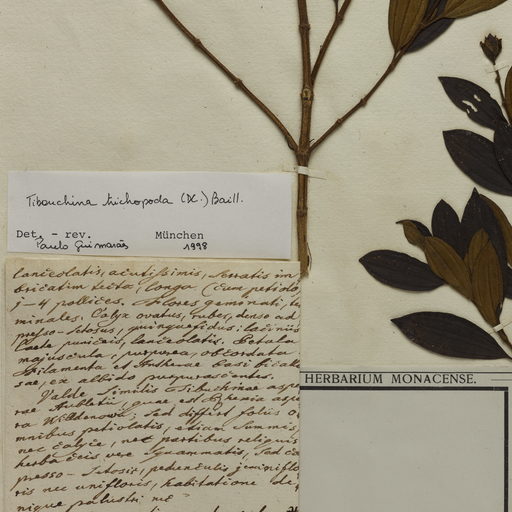 Tibouchina trichopoda (DC.) Baill.
Det. - rev. München
Paulo Guimarães 1998
lanceolatis, acutissimis, serratis in
bricatim tecta, longa (cum petiolo
1-4 pollices. Flores geminati, te
minales. Calyx ovatus, ruber, dense ad
presso-setosus, quinquefidus: laciniis
puniceis, lanceolatis. Petala
majuscula, purpurea, obcordata
Filamenta et Antherae basi
sae, ex albido purpurascentes.
Valde similis Tibouchinae aspe
rae Aubletii, quae est Rhexia asp
ra Willdenowi; sed differt foliis o
mnibus petiolatis, etiam summis
nec calyce, nec partibus reliquis
herbaceis vere squammatis, sed
presso-setosis, pedunculis
ris nec unifloris, habitatione de
nique palustri
HERBARIUM MONACENSE.